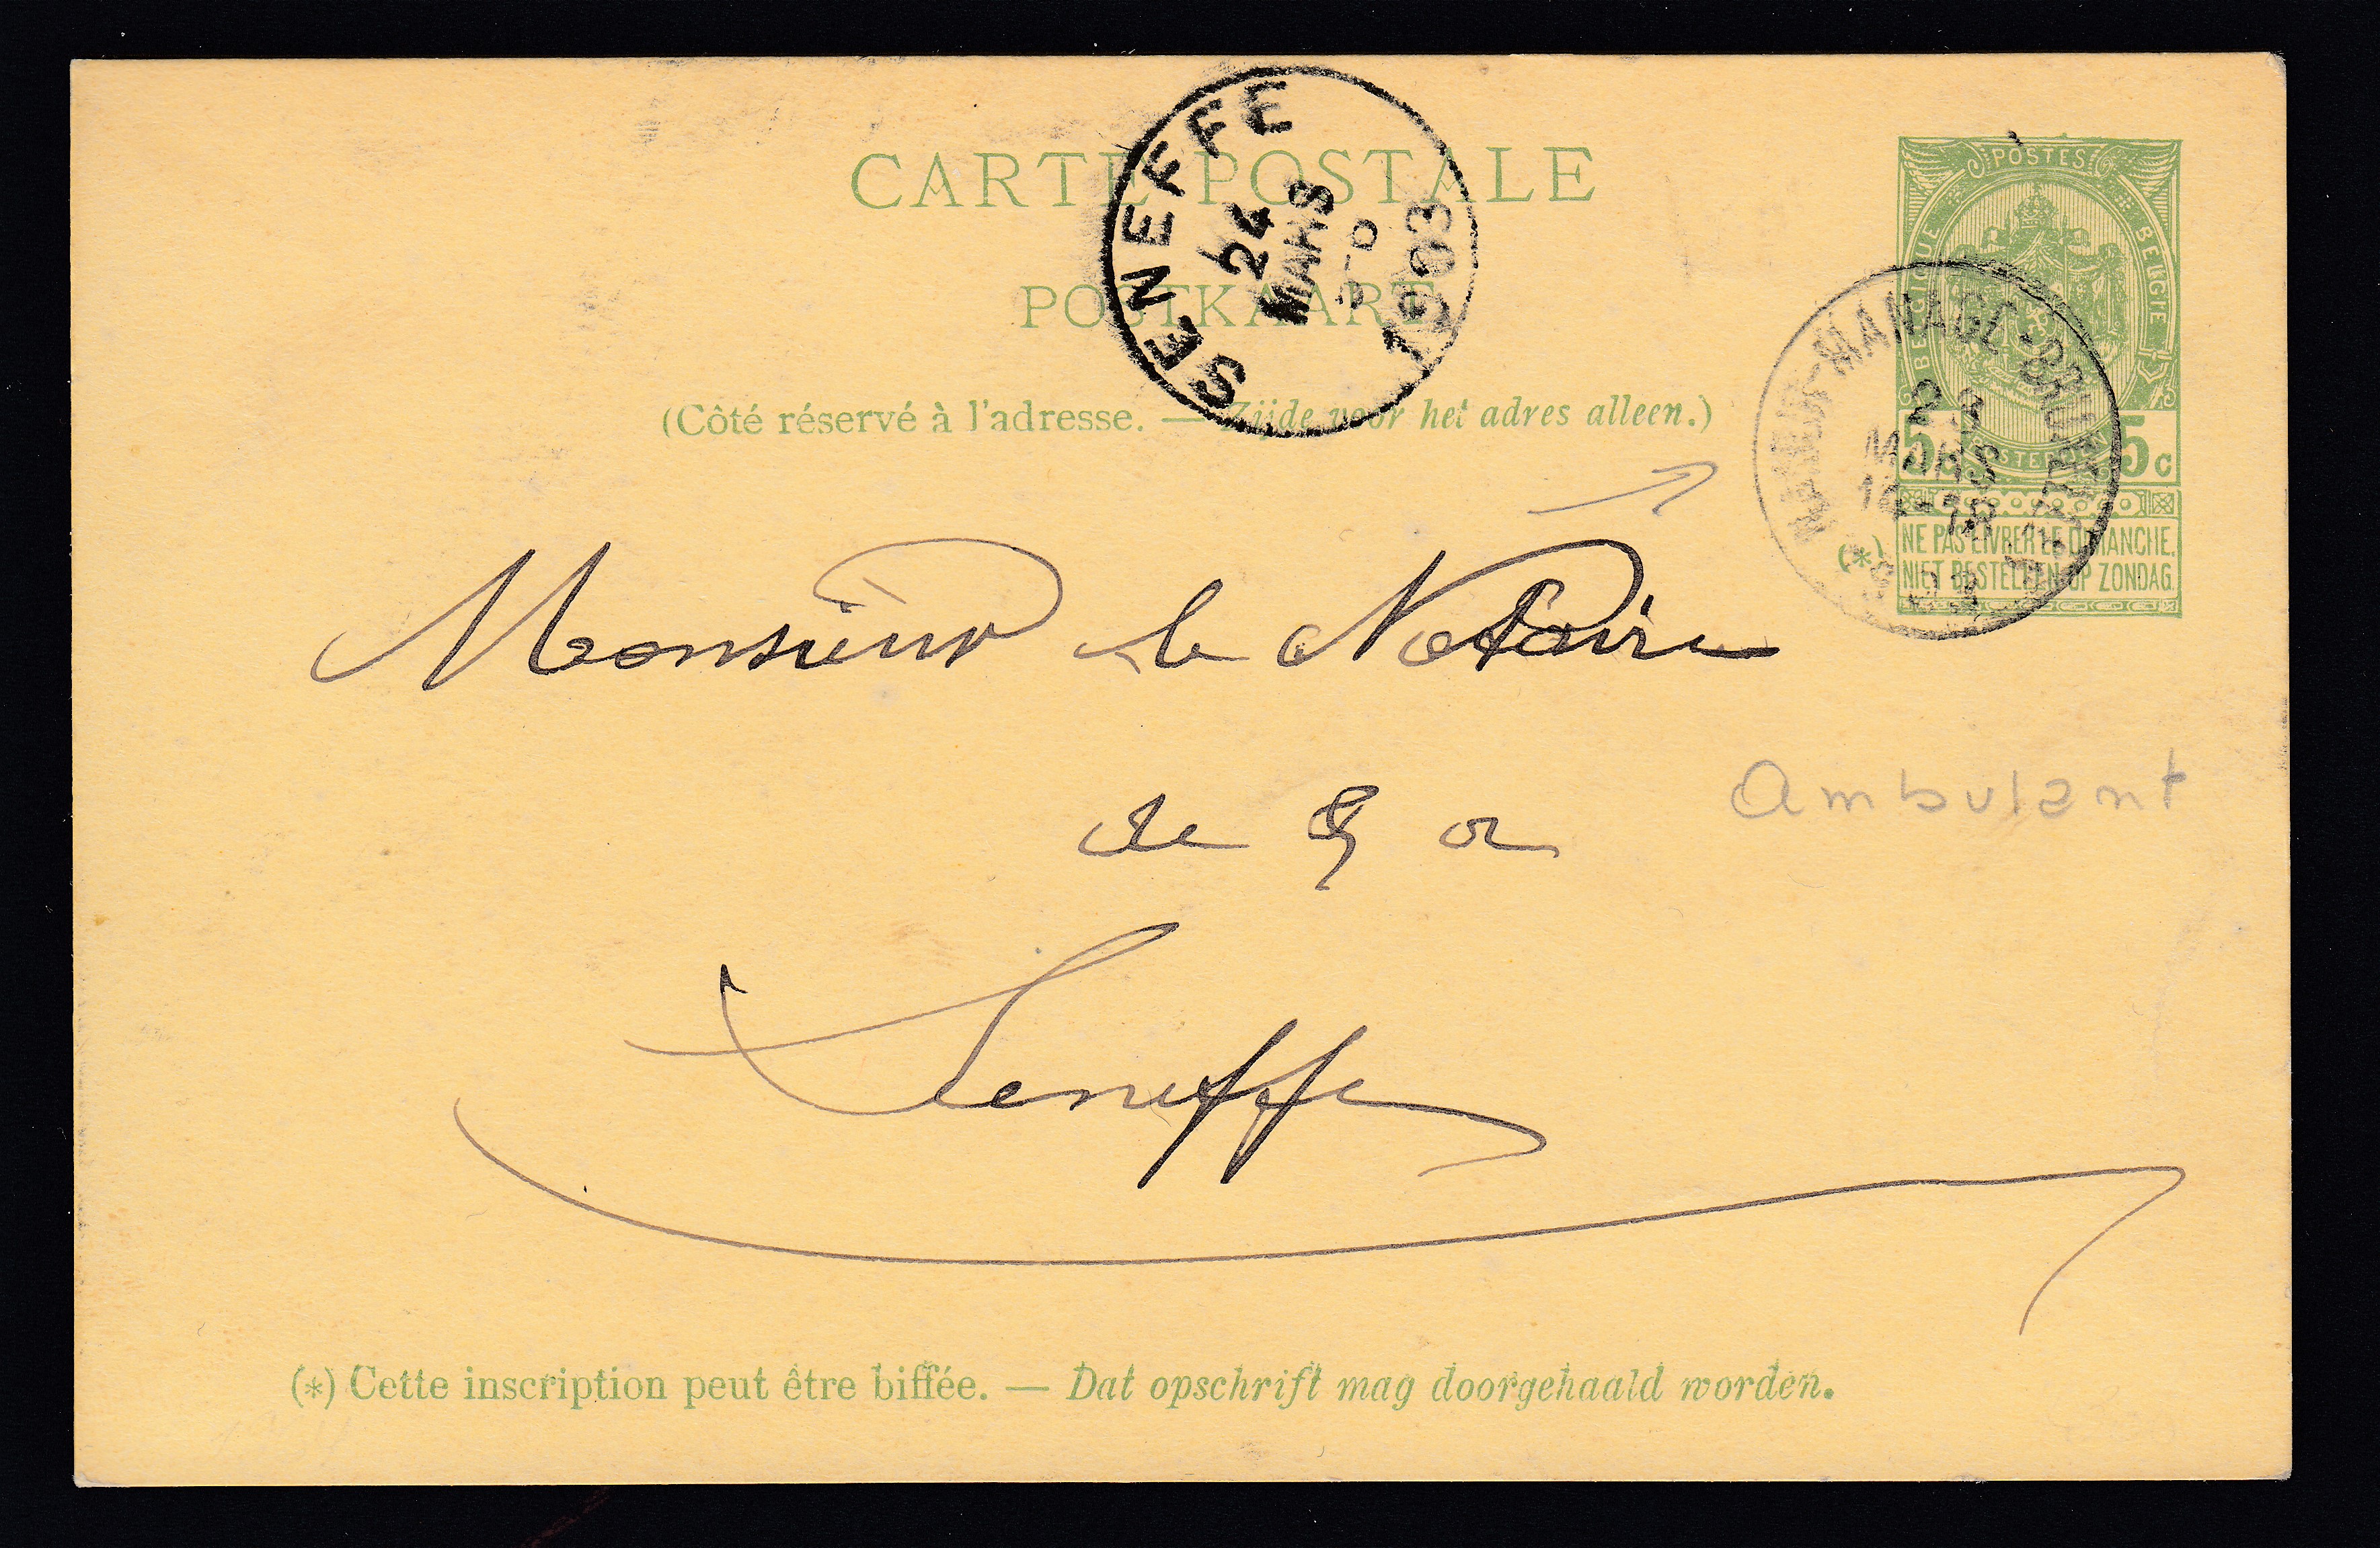 CARTE POSTALE
POSTKAART
(Côté réservé à l'adresse. — Zijde voor het adres alleen.)
SENEFFE
24
MARS
1903
POSTES
BELGIQUE
BELGIE
POSTERIJEN
5c 5c
(*) NE PAS LIVRER LE DIMANCHE.
NIET BESTELLEN OP ZONDAG.
MANAGE-BRUXELLES
23
MARS
16-18
Monsieur le Notaire
de
Ambulant
Seneffe
(*) Cette inscription peut être biffée. — Dat opschrift mag doorgehaald worden.